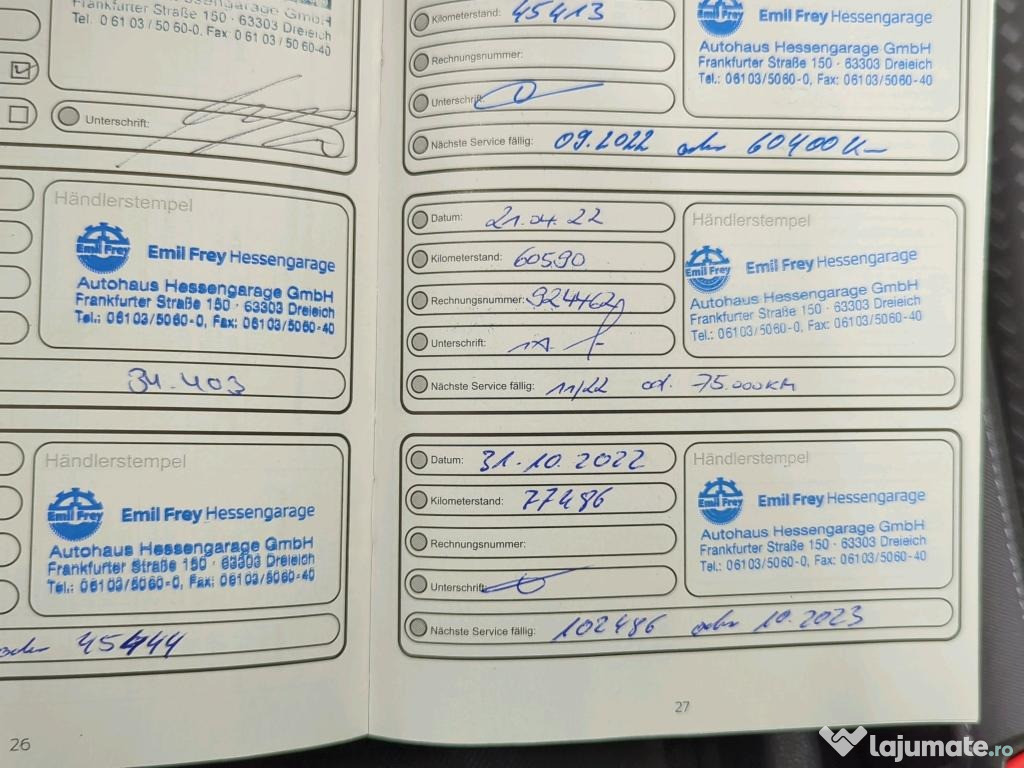 Hessengarage GmbH
Frankfurter Straße 150 · 63303 Dreieich
Tel. 0 61 03 / 50 60-0, Fax 0 61 03 / 50 60-40
Unterschrift:
Händlerstempel
Emil Frey
Emil Frey Hessengarage
Autohaus Hessengarage GmbH
Frankfurter Straße 150 · 63303 Dreieich
Tel.: 06103/5060-0, Fax: 06103/5060-40
31.403
Händlerstempel
Emil Frey
Emil Frey Hessengarage
Autohaus Hessengarage GmbH
Frankfurter Straße 150 · 63303 Dreieich
Tel.: 06103/5060-0, Fax: 06103/5060-40
oder 45444
26
Kilometerstand: 45413
Rechnungsnummer:
Unterschrift:
Emil Frey Hessengarage
Autohaus Hessengarage GmbH
Frankfurter Straße 150 · 63303 Dreieich
Tel.: 06103/5060-0, Fax: 06103/5060-40
Nächste Service fällig: 09.2022 oder 60400 Km
Datum: 21.04.22
Kilometerstand: 60590
Rechnungsnummer: 924462
Unterschrift:
Händlerstempel
Emil Frey
Emil Frey Hessengarage
Autohaus Hessengarage GmbH
Frankfurter Straße 150 · 63303 Dreieich
Tel.: 06103/5060-0, Fax: 06103/5060-40
Nächste Service fällig: 11/22 od. 75.000KM
Datum: 31.10.2022
Kilometerstand: 77486
Rechnungsnummer:
Unterschrift:
Händlerstempel
Emil Frey
Emil Frey Hessengarage
Autohaus Hessengarage GmbH
Frankfurter Straße 150 · 63303 Dreieich
Tel.: 06103/5060-0, Fax: 06103/5060-40
Nächste Service fällig: 102486 oder 10.2023
27
lajumate.ro